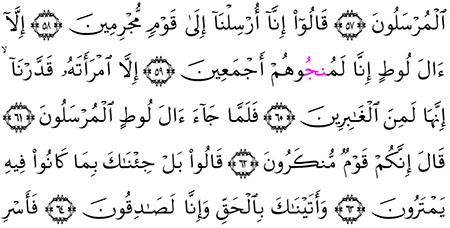 ٱلۡمُرۡسَلُونَ ۝٥٧ قَالُوٓاْ إِنَّآ أُرۡسِلۡنَآ إِلَىٰ قَوۡمٖ مُّجۡرِمِينَ ۝٥٨ إِلَّآ
ءَالَ لُوطٍ إِنَّا لَمُنَجُّوهُمۡ أَجۡمَعِينَ ۝٥٩ إِلَّا ٱمۡرَأَتَهُۥ قَدَّرۡنَآۙ
إِنَّهَا لَمِنَ ٱلۡغَٰبِرِينَ ۝٦٠ فَلَمَّا جَآءَ ءَالَ لُوطٍ ٱلۡمُرۡسَلُونَ ۝٦١
قَالَ إِنَّكُمۡ قَوۡمٞ مُّنكَرُونَ ۝٦٢ قَالُواْ بَلۡ جِئۡنَٰكَ بِمَا كَانُواْ فِيهِ
يَمۡتَرُونَ ۝٦٣ وَأَتَيۡنَٰكَ بِٱلۡحَقِّ وَإِنَّا لَصَٰدِقُونَ ۝٦٤ فَأَسۡرِ